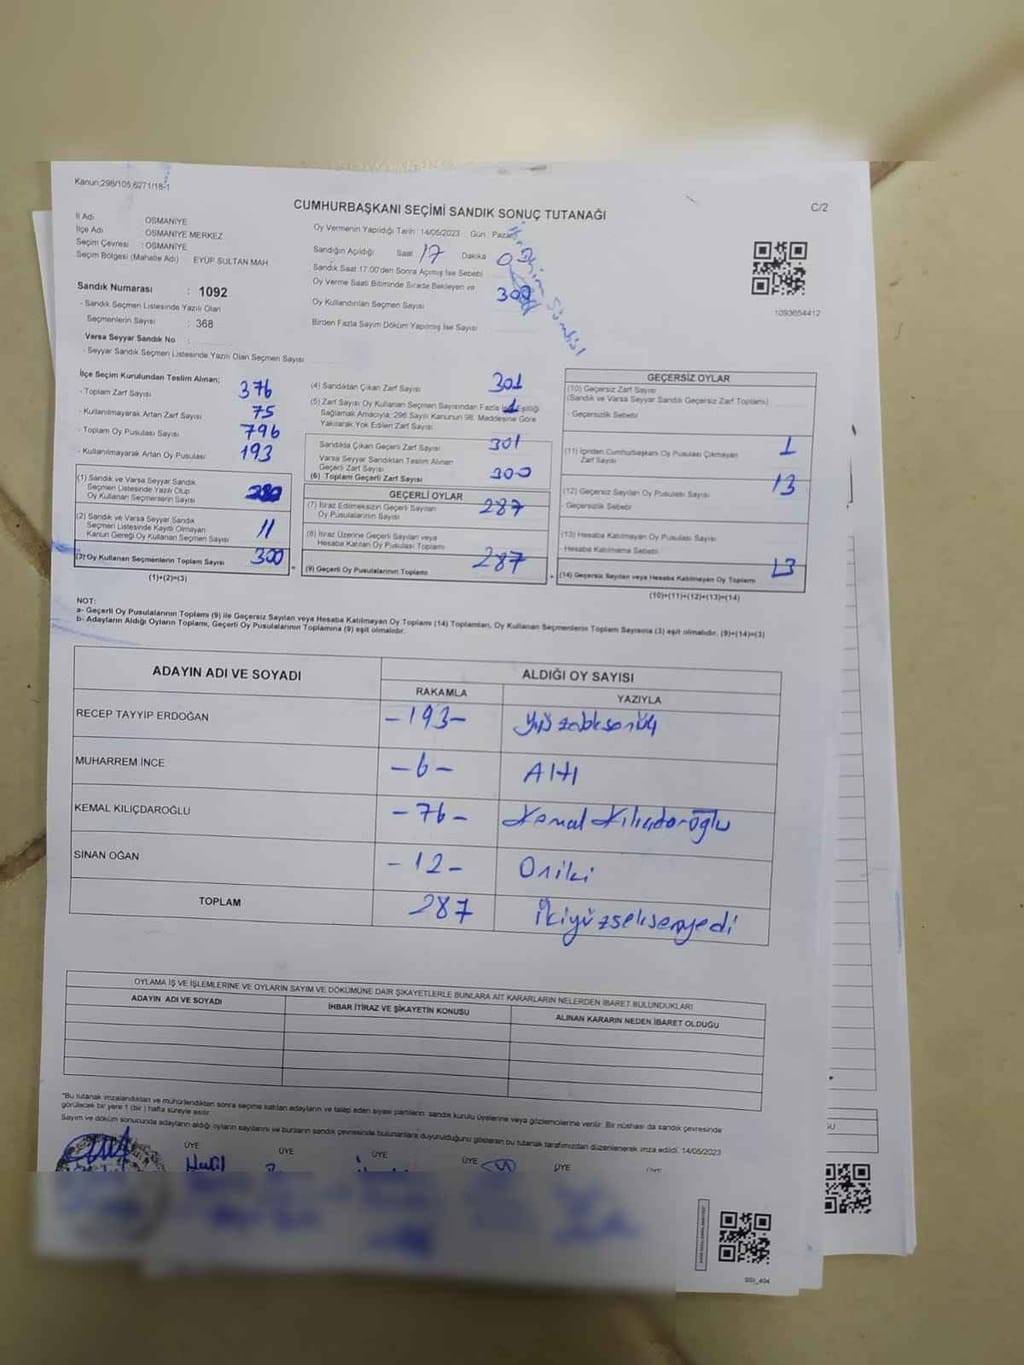 Kanun;298/105,6271/18-1
CUMHURBAŞKANI SEÇİMİ SANDIK SONUÇ TUTANAĞI
C/2
İl Adı OSMANİYE
İlçe Adı OSMANİYE MERKEZ
Seçim Çevresi : OSMANİYE
Seçim Bölgesi (Mahalle Adı) EYÜP SULTAN MAH
Sandık Numarası : 1092
- Sandık Seçmen Listesinde Yazılı Olan
Seçmenlerin Sayısı : 368
Varsa Seyyar Sandık No
- Seyyar Sandık Seçmen Listesinde Yazılı Olan Seçmen Sayısı
Oy Vermenin Yapıldığı Tarih 14/05/2023 Gün : Pazar
Sandığın Açıldığı Saat 17 Dakika
Sandık Saat 17:00'den Sonra Açılmış İse Sebebi
Oy Verme Saati Bitiminde Sırada Bekleyen ve
Oy Kullandırılan Seçmen Sayısı
Birden Fazla Sayım Döküm Yapılmış İse Sayısı
1093654412
İlçe Seçim Kurulundan Teslim Alınan;
- Toplam Zarf Sayısı 376
- Kullanılmayarak Artan Zarf Sayısı 75
- Toplam Oy Pusulası Sayısı 796
- Kullanılmayarak Artan Oy Pusulası 193
(1) Sandık ve Varsa Seyyar Sandık
Seçmen Listesinde Yazılı Olup
Oy Kullanan Seçmenlerin Sayısı
(2) Sandık ve Varsa Seyyar Sandık
Seçmen Listesinde Kayıtlı Olmayan
Kanun Gereği Oy Kullanan Seçmen Sayısı 11
(3) Oy Kullanan Seçmenlerin Toplam Sayısı 300
(1)+(2)=(3)
(4) Sandıktan Çıkan Zarf Sayısı 301
(5) Zarf Sayısı Oy Kullanan Seçmen Sayısından Fazla İse Eşitliği
Sağlamak Amacıyla; 298 Sayılı Kanunun 98. Maddesine Göre
Yakılarak Yok Edilen Zarf Sayısı 1
Sandıkta Çıkan Geçerli Zarf Sayısı 301
Varsa Seyyar Sandıktan Teslim Alınan
Geçerli Zarf Sayısı
(6) Toplam Geçerli Zarf Sayısı 300
GEÇERLİ OYLAR
(7) İtiraz Edilmeksizin Geçerli Sayılan
Oy Pusulalarının Sayısı 287
(8) İtiraz Üzerine Geçerli Sayılan veya
Hesaba Katılan Oy Pusulası Toplamı
(9) Geçerli Oy Pusulalarının Toplamı 287
GEÇERSİZ OYLAR
(10) Geçersiz Zarf Sayısı
(Sandık ve Varsa Seyyar Sandık Geçersiz Zarf Toplamı)
- Geçersizlik Sebebi
(11) İçinden Cumhurbaşkanı Oy Pusulası Çıkmayan
Zarf Sayısı 1
(12) Geçersiz Sayılan Oy Pusulası Sayısı 13
- Geçersizlik Sebebi
(13) Hesaba Katılmayan Oy Pusulası Sayısı
- Hesaba Katılmama Sebebi
(14) Geçersiz Sayılan veya Hesaba Katılmayan Oy Toplamı 13
(10)+(11)+(12)+(13)=(14)
NOT:
a- Geçerli Oy Pusulalarının Toplamı (9) ile Geçersiz Sayılan veya Hesaba Katılmayan Oy Toplamı (14) Toplamları, Oy Kullanan Seçmenlerin Toplam Sayısına (3) eşit olmalıdır. (9)+(14)=(3)
b- Adayların Aldığı Oyların Toplamı, Geçerli Oy Pusulalarının Toplamına (9) eşit olmalıdır.
ADAYIN ADI VE SOYADI ALDIĞI OY SAYISI
RAKAMLA YAZIYLA
RECEP TAYYİP ERDOĞAN -193-
MUHARREM İNCE -6- Altı
KEMAL KILIÇDAROĞLU -76- Kemal Kılıçdaroğlu
SİNAN OĞAN -12- Oniki
TOPLAM 287 İkiyüzseksenyedi
OYLAMA İŞ VE İŞLEMLERİNE VE OYLARIN SAYIM VE DÖKÜMÜNE DAİR ŞİKAYETLERLE BUNLARA AİT KARARLARIN NELERDEN İBARET BULUNDUKLARI
ADAYIN ADI VE SOYADI İHBAR İTİRAZ VE ŞİKAYETİN KONUSU ALINAN KARARIN NEDEN İBARET OLDUĞU
"Bu tutanak imzalandıktan ve mühürlendikten sonra seçime katılan adayların ve talep eden siyasi partilerin sandık kurulu üyelerine veya gözlemcilerine verilir. Bir nüshası da sandık çevresinde
görülecek bir yere 1 (bir) hafta süreyle asılır.
Sayım ve döküm sonucunda adayların aldığı oyların sayılarını ve bunların sandık çevresinde bulunanlara duyurulduğunu gösteren bu tutanak tarafımızdan düzenlenerek imza edildi. 14/05/2023
ÜYE ÜYE ÜYE ÜYE ÜYE ÜYE